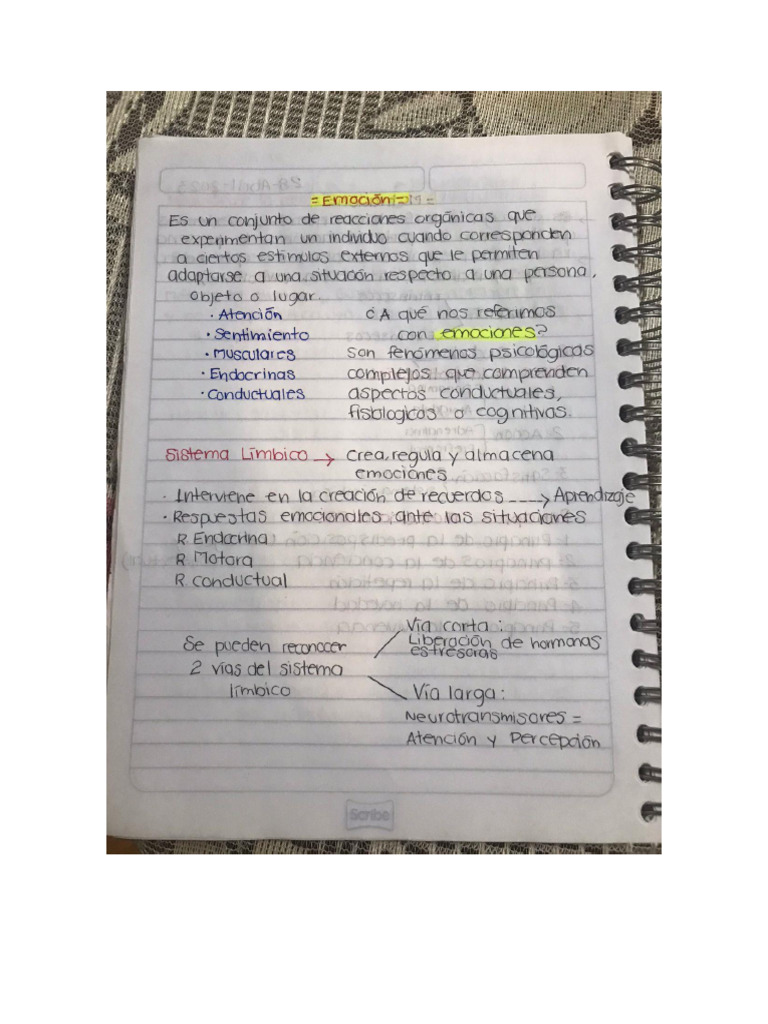 = Emoción =
Es un conjunto de reacciones orgánicas que
experimentan un individuo cuando corresponden
a ciertos estímulos externos que le permiten
adaptarse a una situación respecto a una persona,
objeto o lugar.
· Atención
· Sentimiento
· Musculares
· Endocrinas
· Conductuales
¿A qué nos referimos
con emociones?
Son fenómenos psicológicos
complejos que comprenden
aspectos conductuales,
fisiologicos o cognitivas.
Sistema Límbico → crea, regula y almacena
emociones
· Interviene en la creación de recuerdos ---→ Aprendizaje
· Respuestas emocionales ante las situaciones
R. Endocrina
R. Motora
R. conductual
Se pueden reconocer
2 vías del sistema
límbico
Vía corta:
Liberación de hormonas
estresoras
Vía larga:
Neurotransmisores =
Atención y Percepción
Scribe